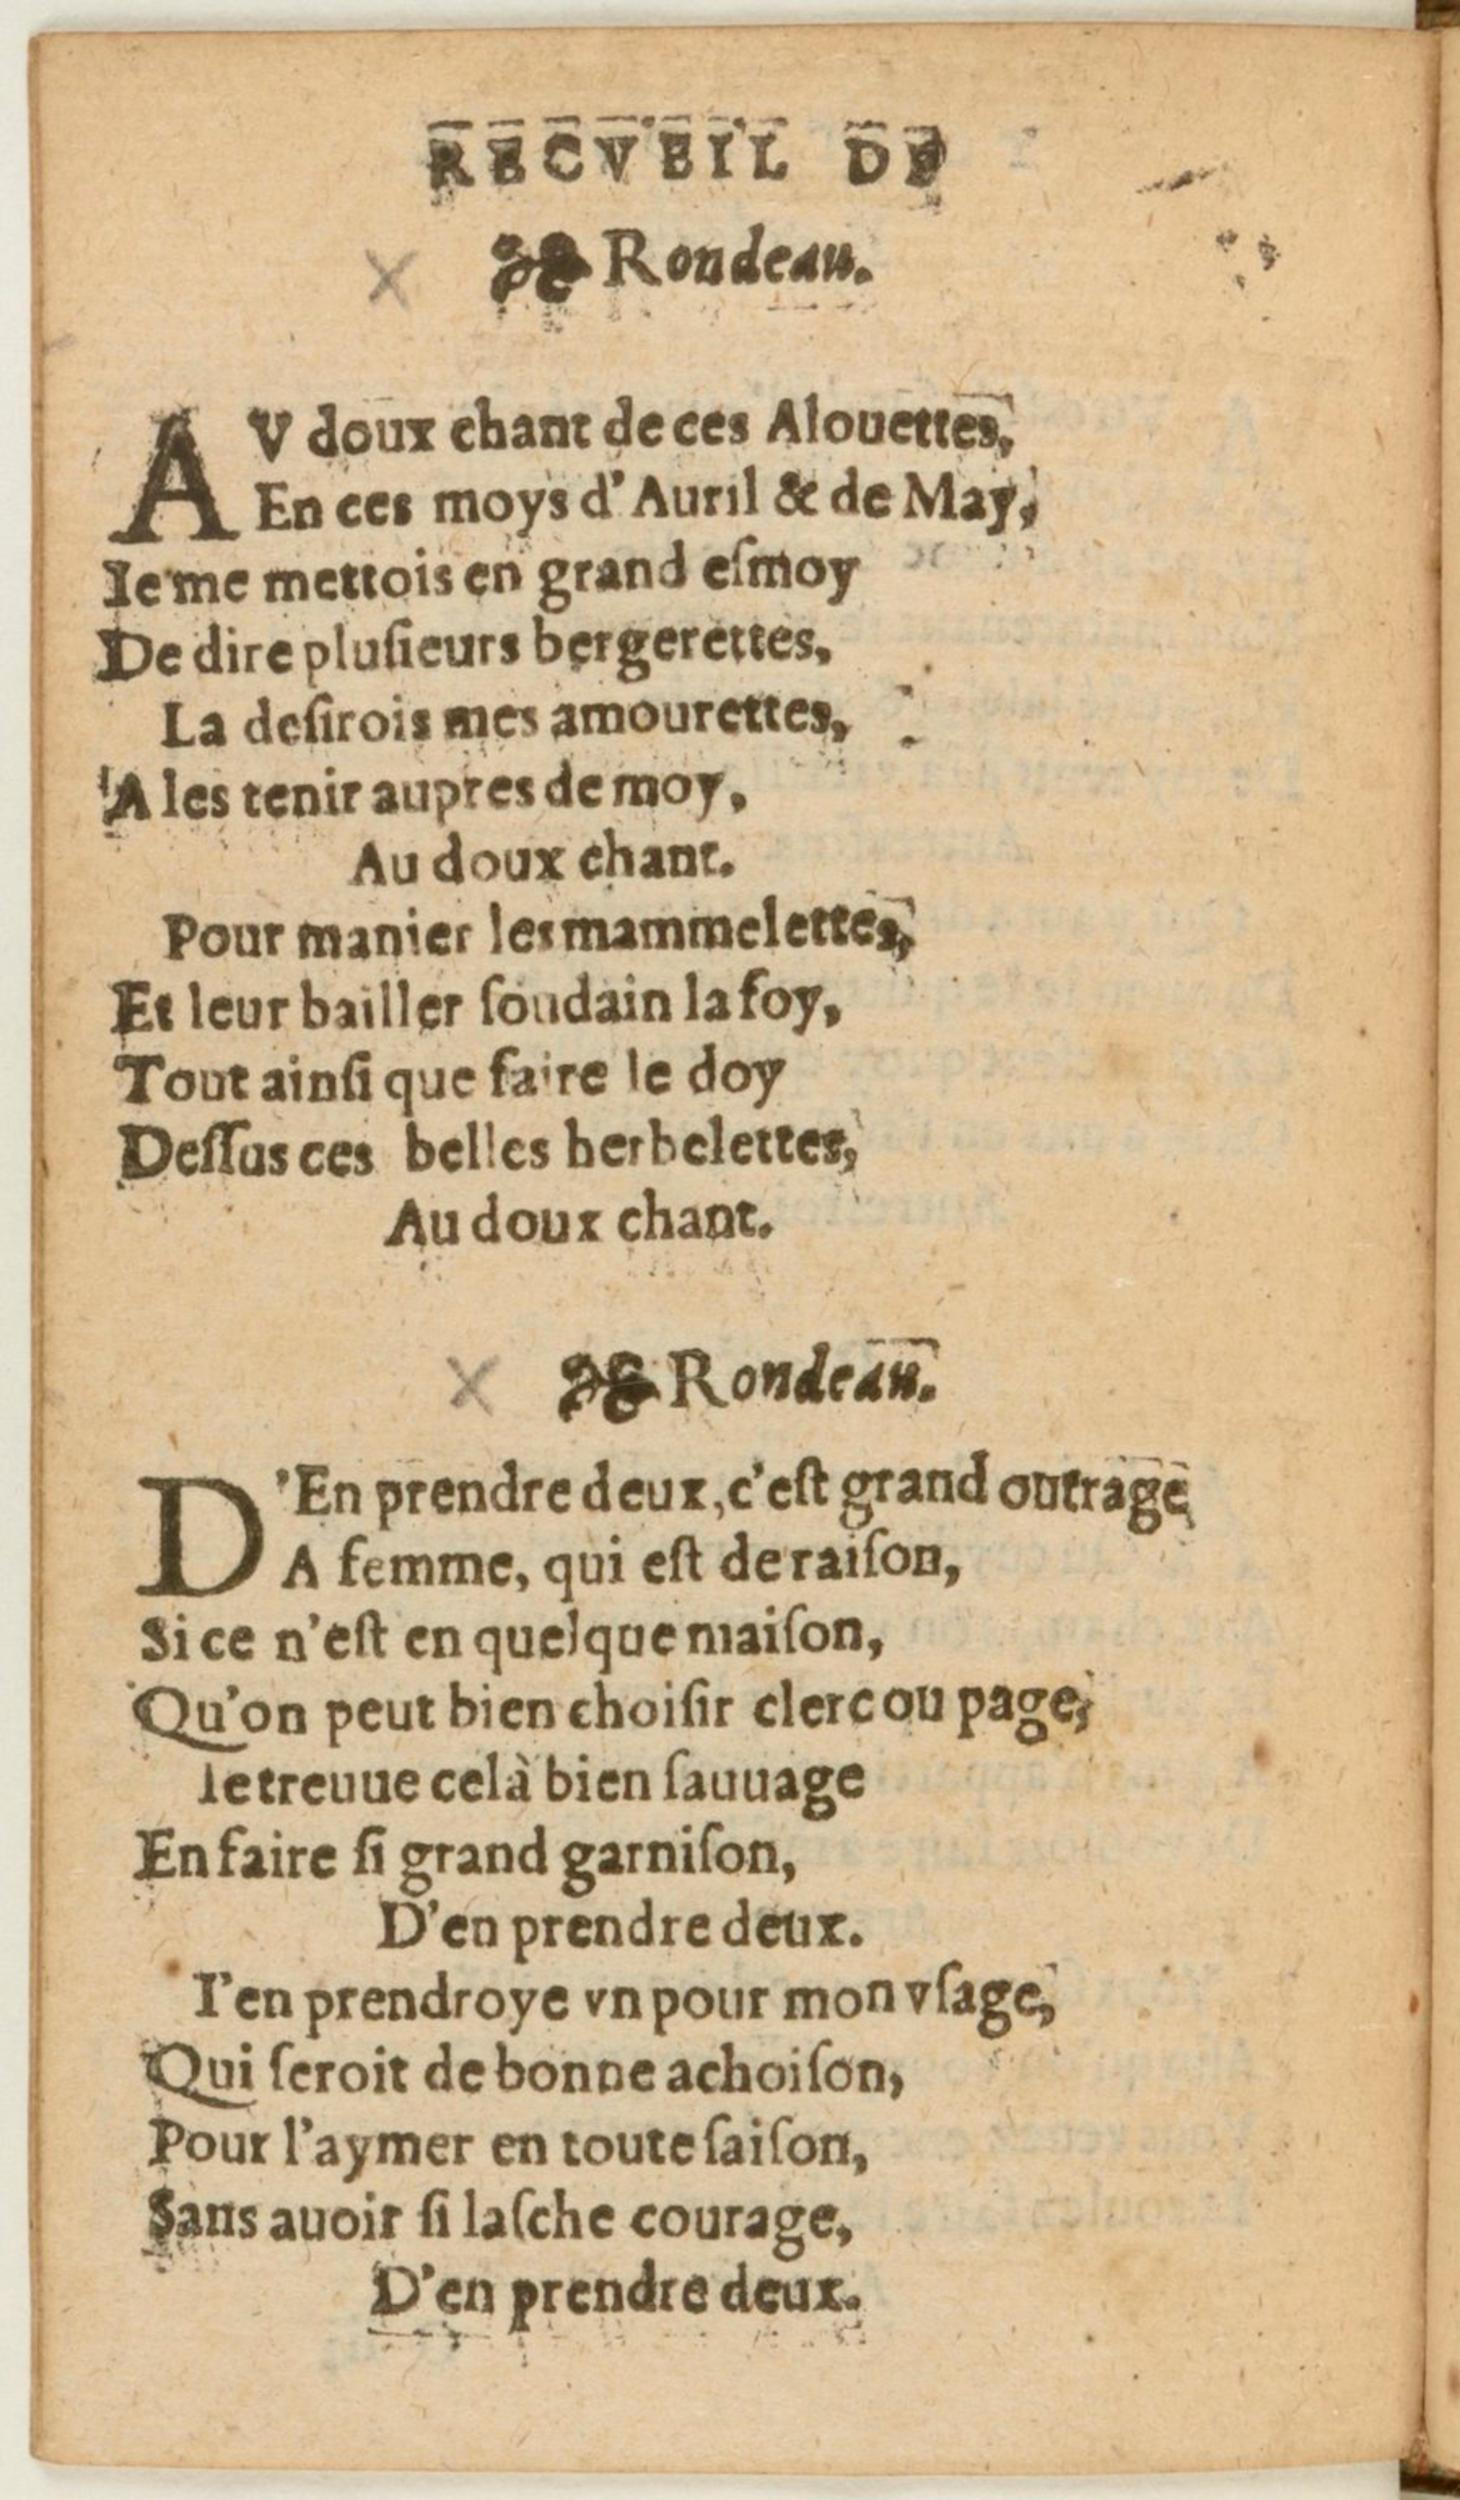 RECVEIL DE
Rondeau.
AV doux chant de ces Alouettes,
En ces moys d'Auril & de May,
Ie me mettois en grand eſmoy
De dire pluſieurs bergerettes,
La deſirois mes amourettes,
A les tenir aupres de moy,
Au doux chant.
Pour manier les mammelettes,
Et leur bailler ſoudain la foy,
Tout ainſi que faire le doy
Deſſus ces belles herbelettes,
Au doux chant.
Rondeau.
D'En prendre deux, c'eſt grand outrage
A femme, qui eſt de raiſon,
Si ce n'eſt en quelque maiſon,
Qu'on peut bien choiſir clerc ou page,
Ie treuue celà bien ſauuage
En faire ſi grand garniſon,
D'en prendre deux.
I'en prendroye vn pour mon vſage,
Qui ſeroit de bonne achoiſon,
Pour l'aymer en toute ſaiſon,
Sans auoir ſi laſche courage,
D'en prendre deux.